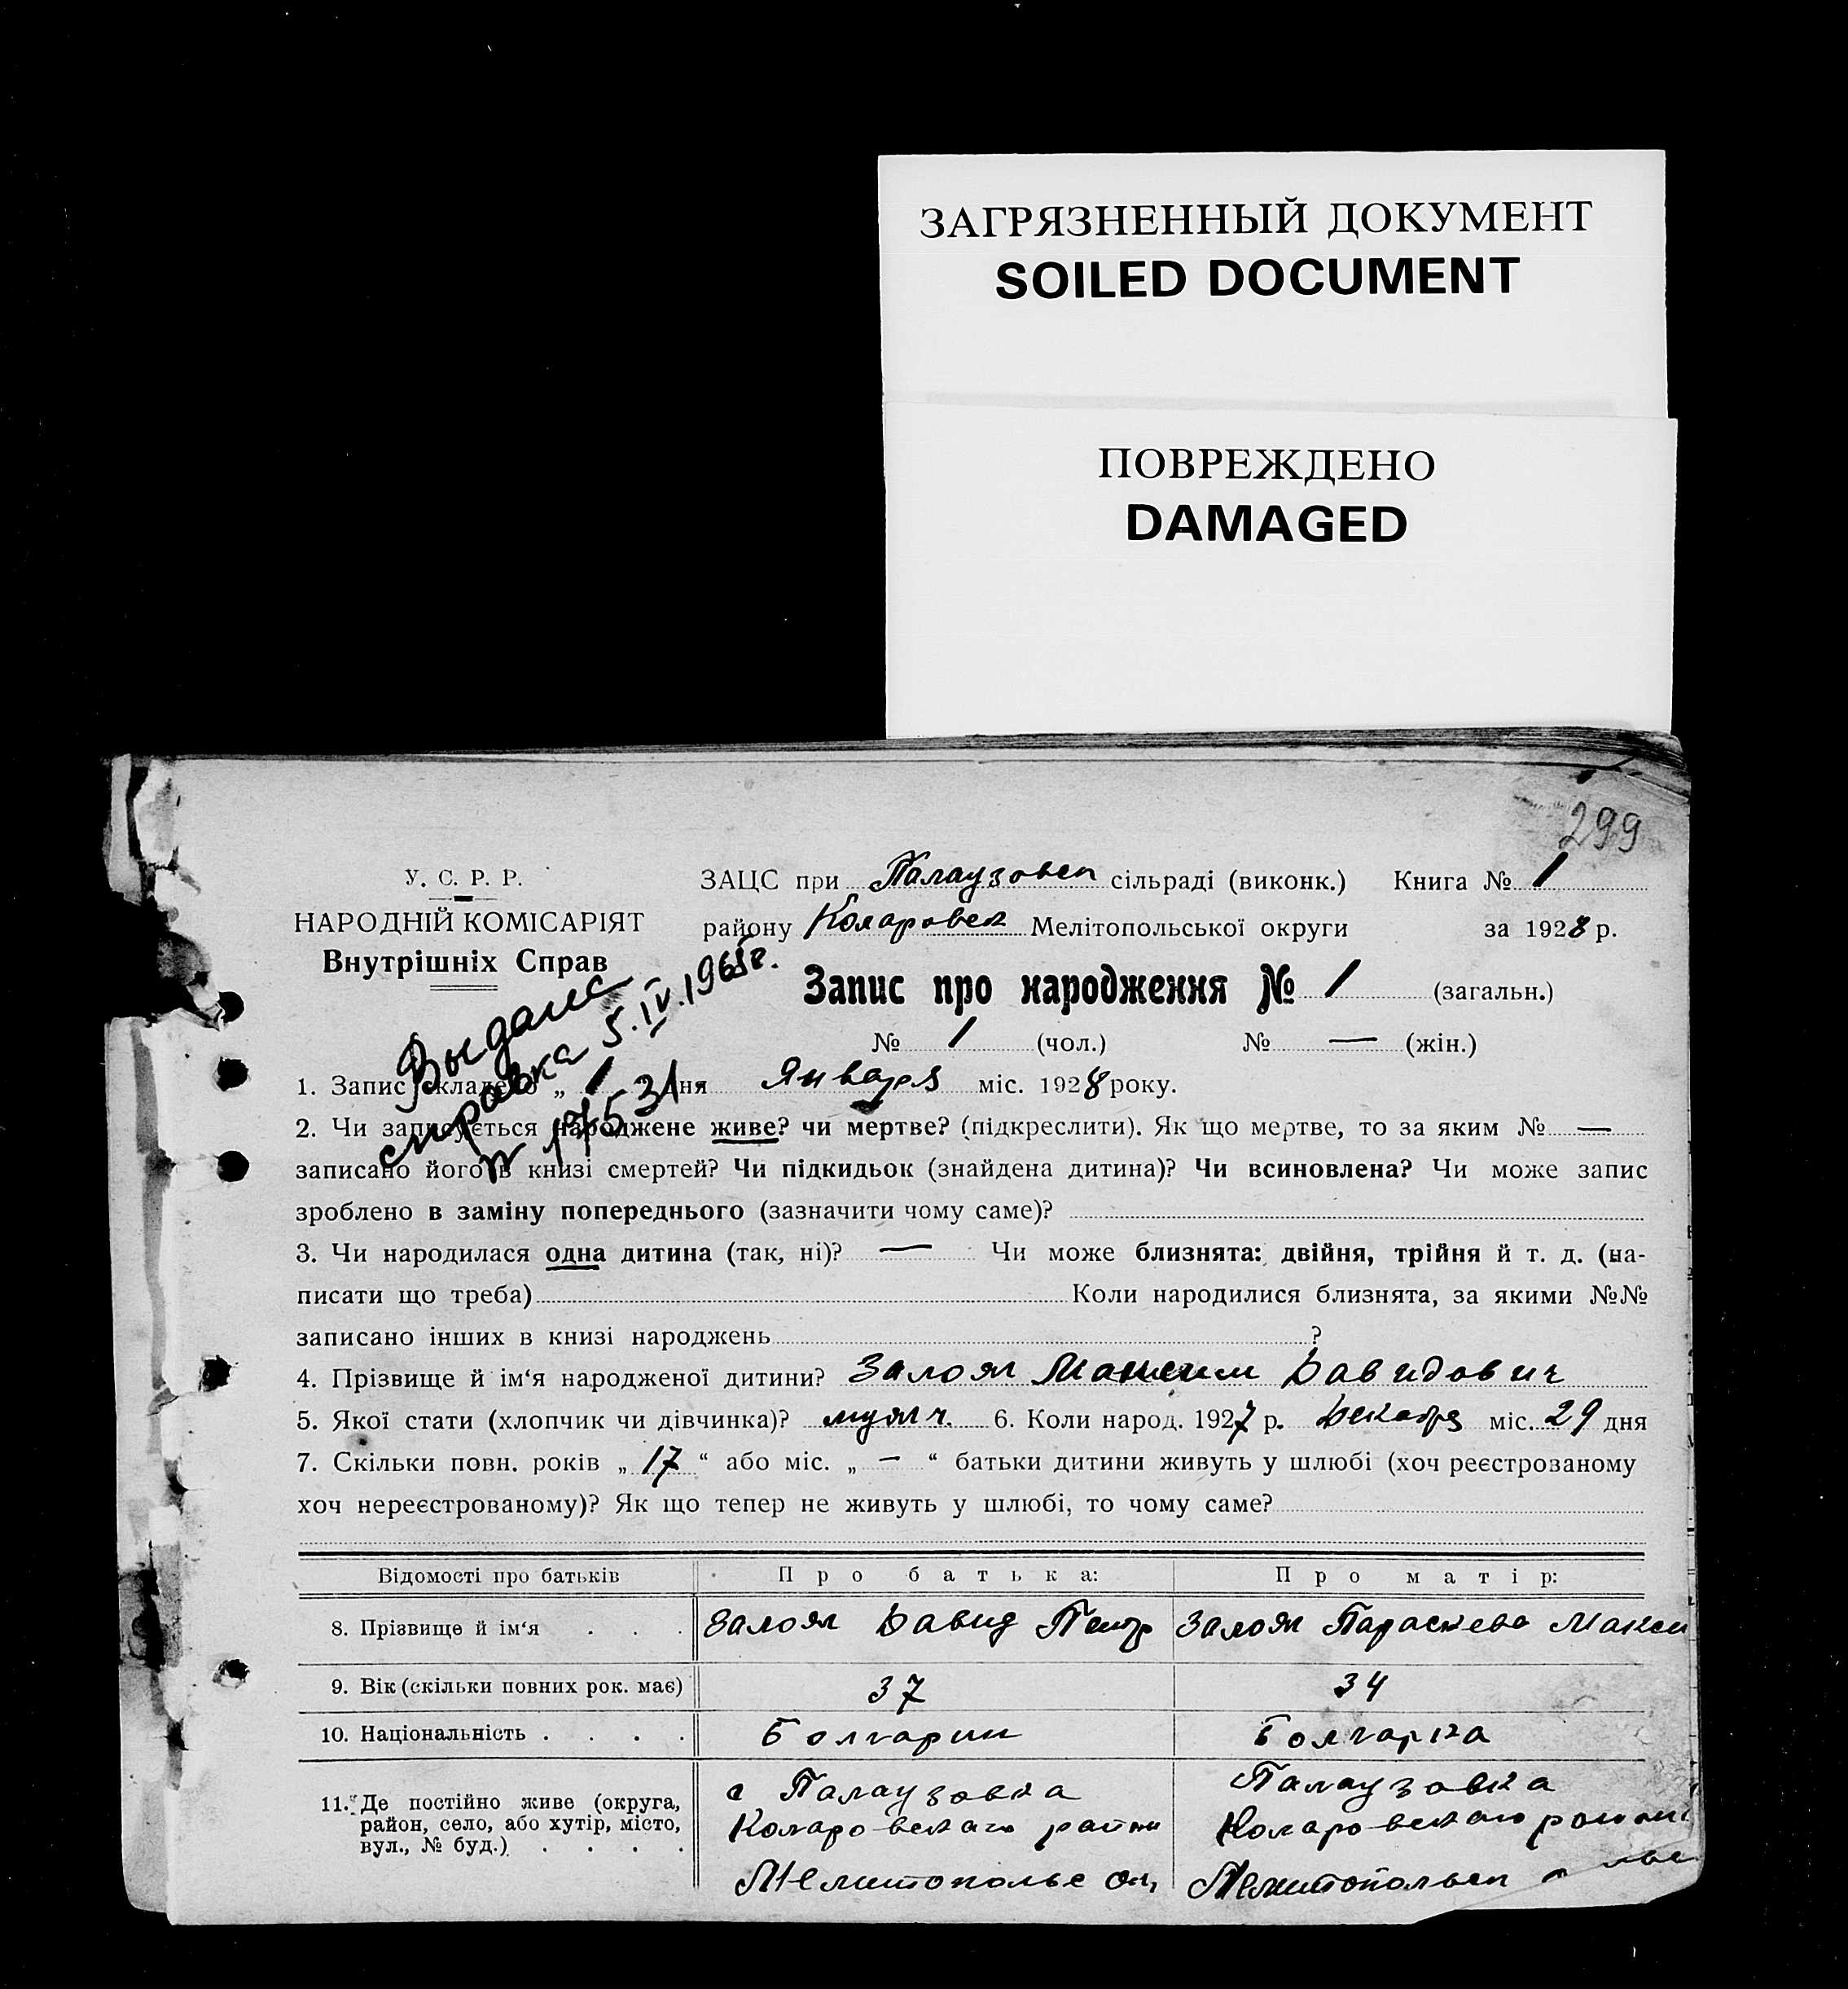 ЗАГРЯЗНЕННЫЙ ДОКУМЕНТ
SOILED DOCUMENT
ПОВРЕЖДЕНО
DAMAGED
299
У. С. Р. Р.
НАРОДНІЙ КОМІСАРІЯТ
Внутрішніх Справ
ЗАЦС при Палаузовск сільраді (виконк.) Книга № 1
району Коларовск Мелітопольської округи за 1928 р.
Запис про народження № 1 (загальн.)
№ 1 (чол.) № — (жін.)
Выдана
справка 5.IV.1965г.
N 17531
1. Запис складено „ 1 " дня Января міс. 1928 року.
2. Чи записується народжене живе? чи мертве? (підкреслити). Як що мертве, то за яким № —
записано його в книзі смертей? Чи підкидьок (знайдена дитина)? Чи всиновлена? Чи може запис
зроблено в заміну попереднього (зазначити чому саме)?
3. Чи народилася одна дитина (так, ні)? — Чи може близнята: двійня, трійня й т. д. (на-
писати що треба) Коли народилися близнята, за якими №№
записано інших в книзі народжень ?
4. Прізвище й ім‘я народженої дитини? Залож Максим Давидович
5. Якої стати (хлопчик чи дівчинка)? мужч. 6. Коли народ. 1927 р. Декабря міс. 29 дня
7. Скільки повн. років „ 17 “ або міс. „ — “ батьки дитини живуть у шлюбі (хоч реєстрованому
хоч нереєстрованому)? Як що тепер не живуть у шлюбі, то чому саме?
Відомості про батьків
Про батька:
Про матір:
8. Прізвище й ім‘я . . .
Залож Давид Петр
Залож Параскева Макси
9. Вік (скільки повних рок. має)
37
34
10. Національність . . . .
Болгарин
Болгарка
11. Де постійно живе (округа,
район, село, або хутір, місто,
вул., № буд.) . . . .
с Палаузовка
Коларовскаго района
Мелитопольс ок,
Палаузовка
Коларовскаго района
Мелитопольск